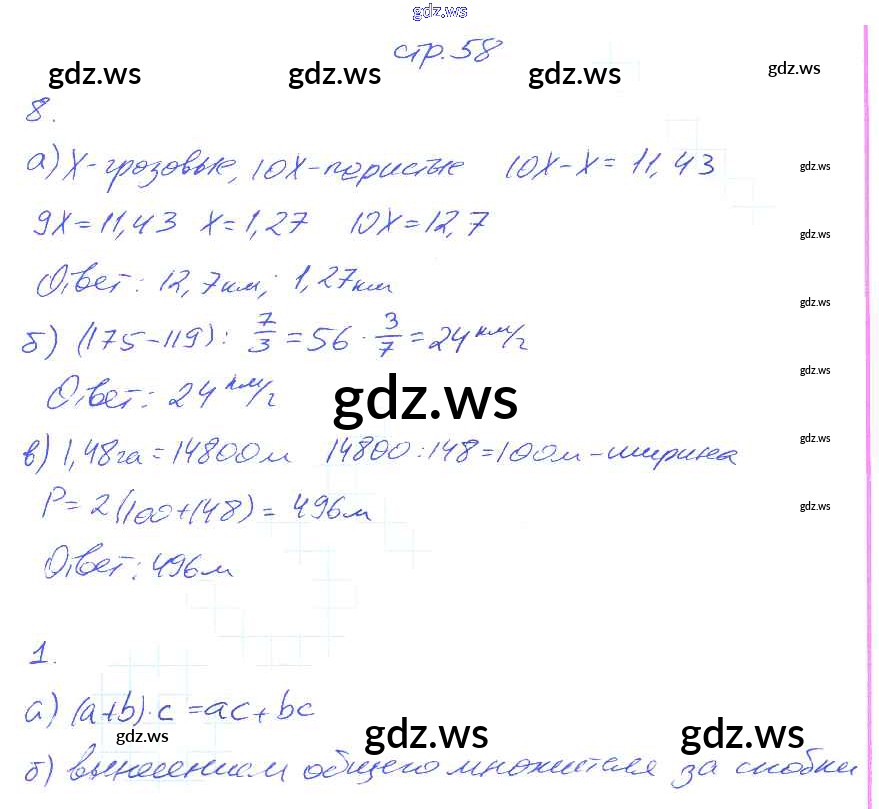 gdz.ws
стр. 58
gdz.ws gdz.ws gdz.ws gdz.ws
8.
а) X - грозовые, 10X - перистые 10X - X = 11,43
gdz.ws
9X = 11,43 X = 1,27 10X = 12,7
gdz.ws
Ответ: 12,7 км; 1,27 км
gdz.ws
б) (175 - 119) : 7/3 = 56 · 3/7 = 24 км/г
gdz.ws
Ответ: 24 км/г
gdz.ws
gdz.ws
в) 1,48 га = 14800 м 14800 : 148 = 100 м - ширина
P = 2 (100 + 148) = 496 м
gdz.ws
Ответ: 496 м
1.
а) (a+b) · c = ac + bc
gdz.ws gdz.ws gdz.ws
б) вынесением общего множителя за скобки